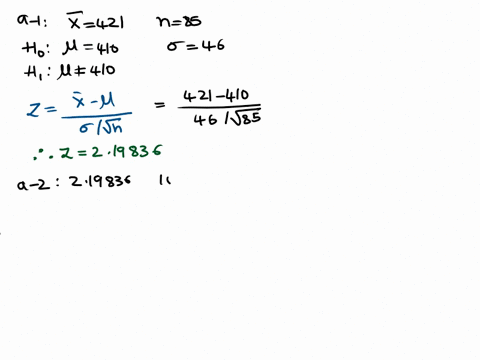 a-1: x̅=421 n=85
H₀: μ=410 σ=46
H₁: μ≠410
Z = x̅-μ / σ/√n = 421-410 / 46/√85
∴ Z=2.19836
a-2: 2.19836